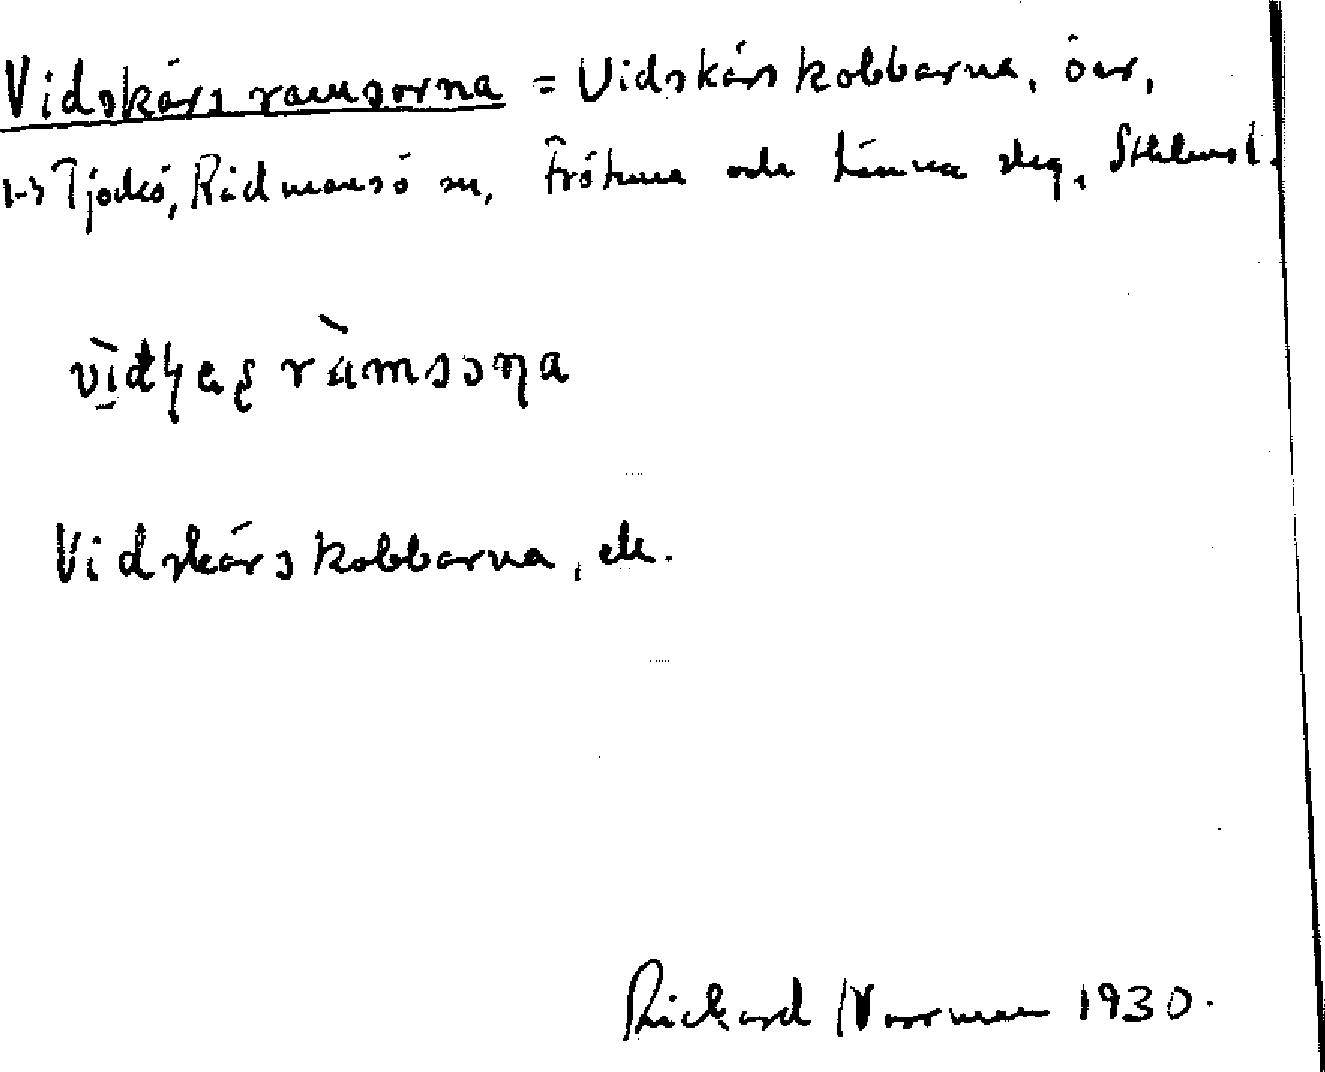 Vidskärs ramsorna = Vidskärskobbarna, öar,
Tjockö, Rådmansö sn, Frötuna och Länna skg, Sthlms l.
Vidskärskobbarna, ek.
Rickard Norrman 1930.